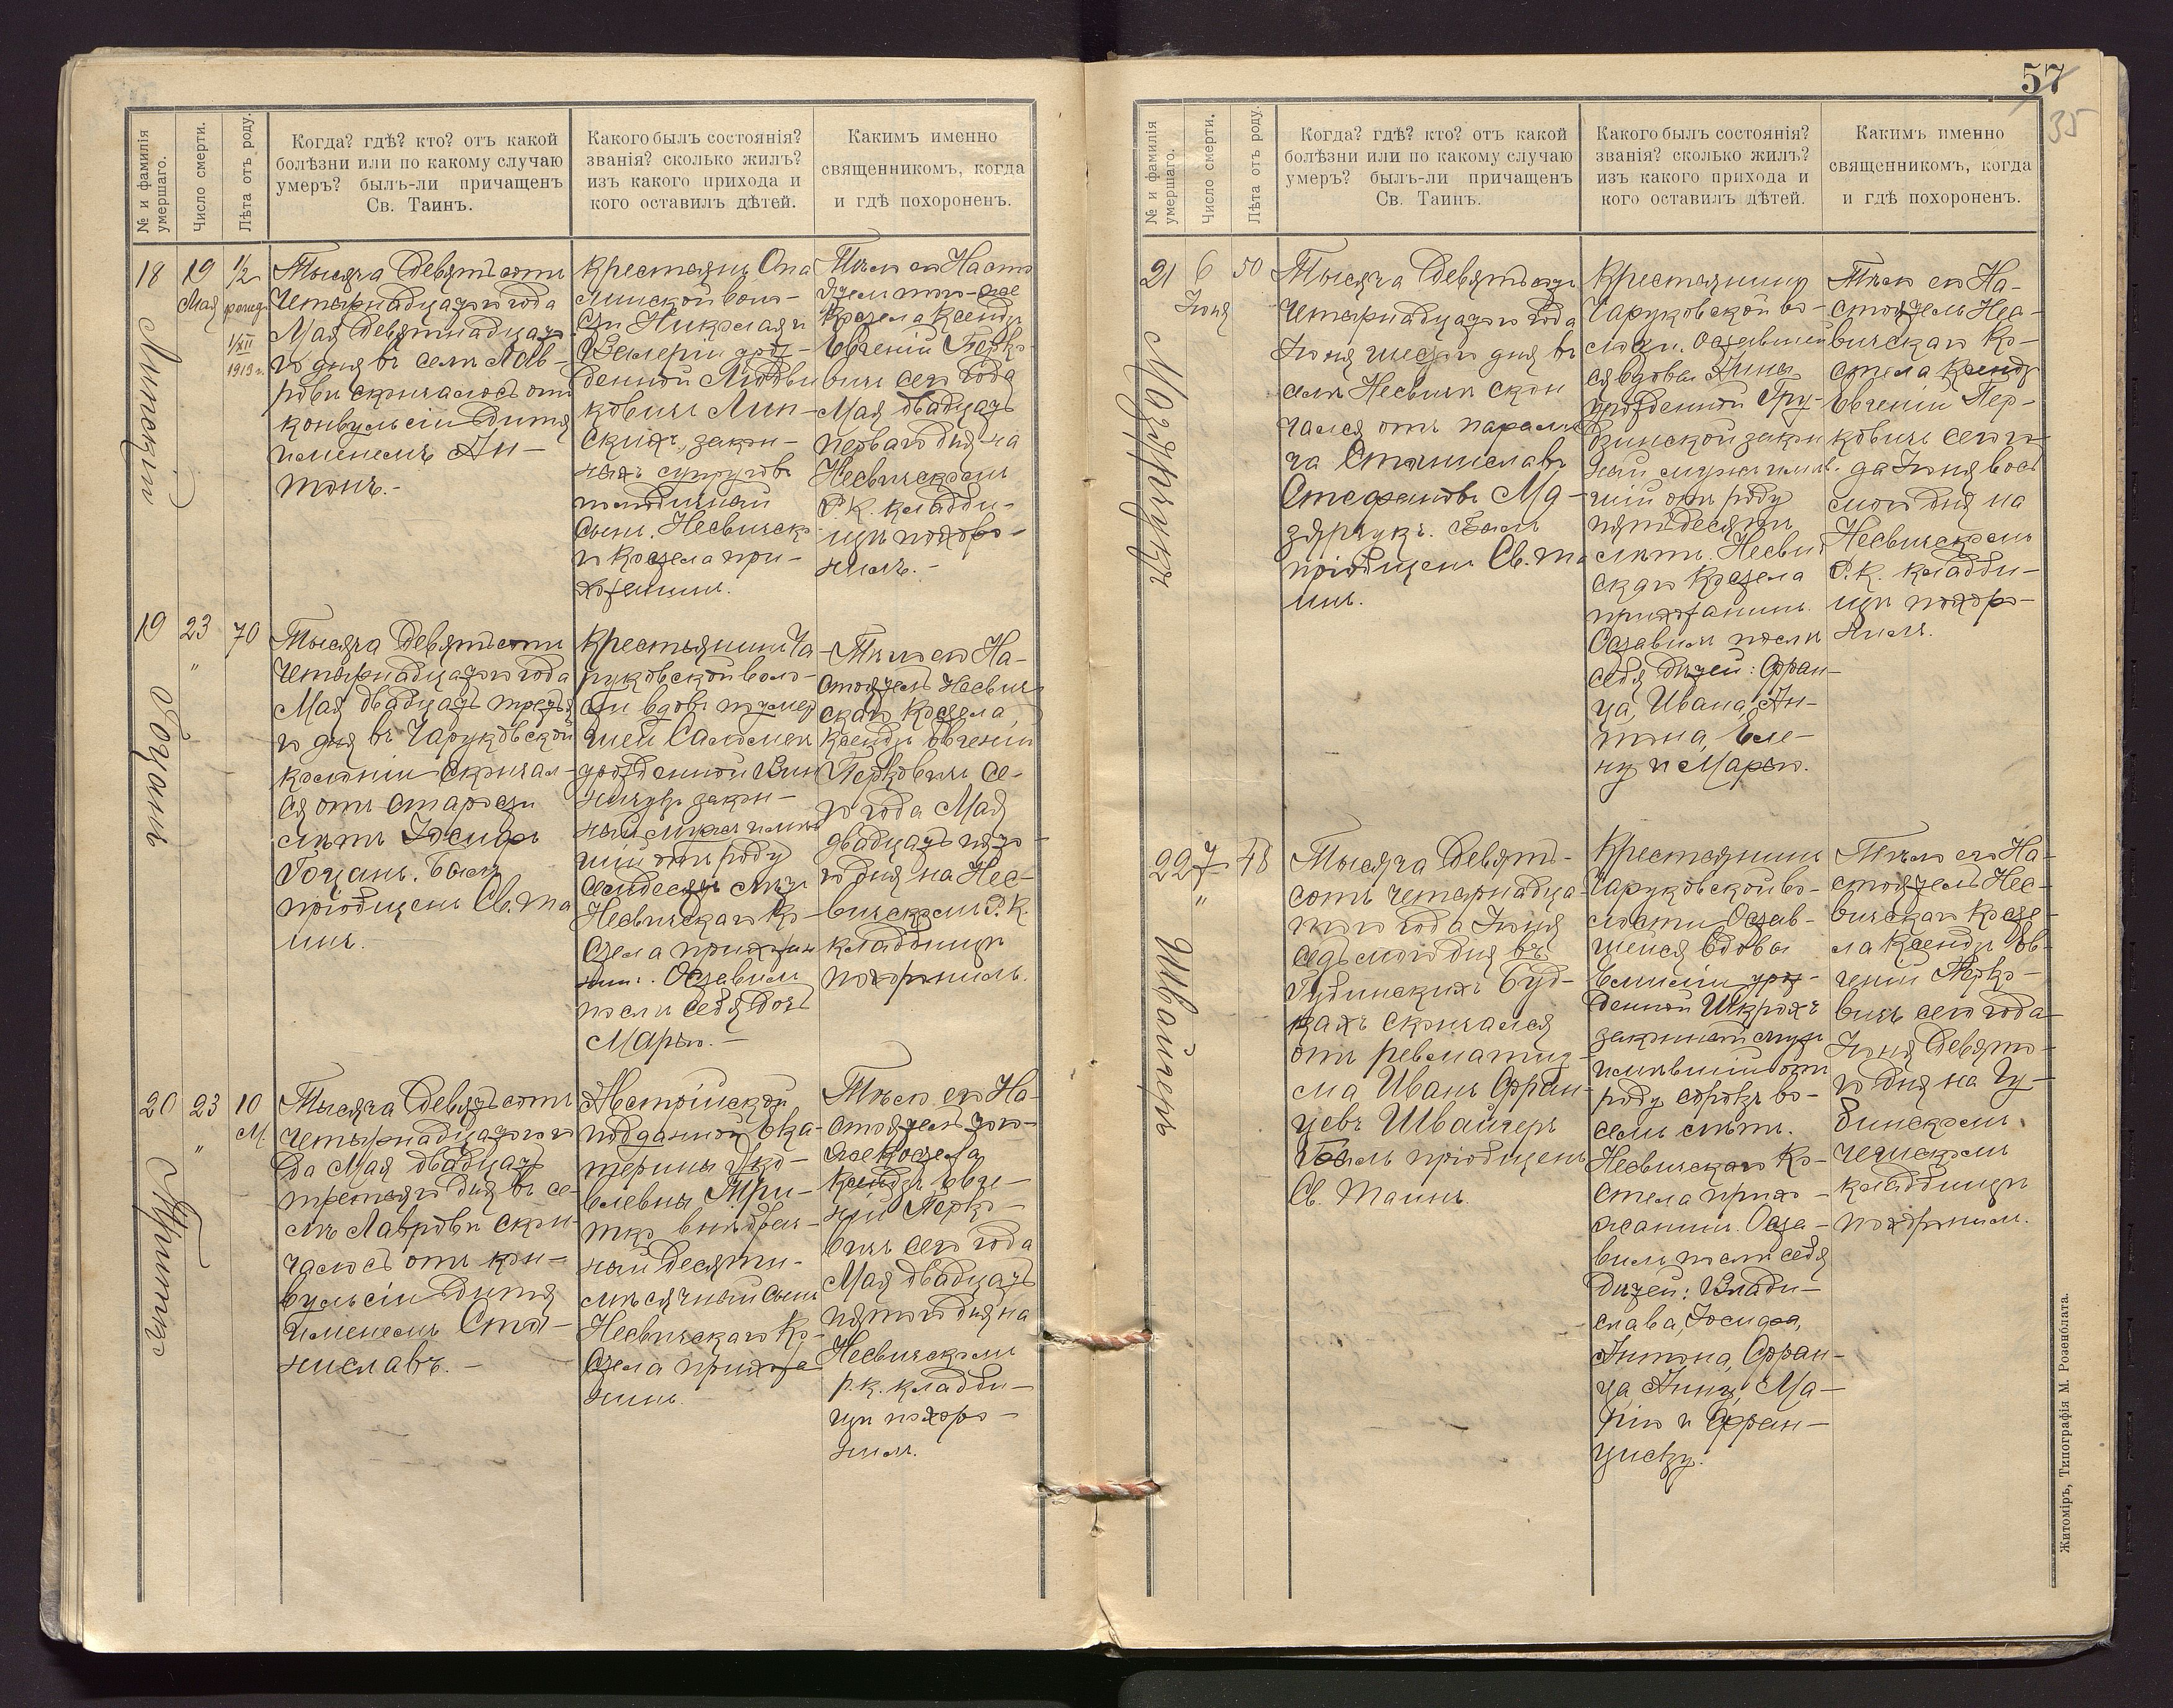 57
35
№ и фамилія умершаго.
Число смерти.
Лѣта отъ роду.
Когда? гдѣ? кто? отъ какой
болѣзни или по какому случаю
умеръ? былъ-ли причащенъ
Св. Таинъ.
Какого былъ состоянія?
званія? сколько жилъ?
изъ какого прихода и
кого оставилъ дѣтей.
Какимъ именно
священникомъ, когда
и гдѣ похороненъ.
18
Липскій
19
Мая
1/2
1/XII
1913 г.
Тысяча девятьсотъ
четырнадцатого года
Мая девятнадцат
го дня въ селѣ Лав-
ровѣ скончалось отъ
конвульсіи дитя
именемъ Ан-
тонъ.-
Крестьянъ
воло-
сти Николая и
Валеріи рож-
денной
ковичъ Лип-
скихъ, закон-
ныхъ супруговъ
полгодичный
сынъ. Несвичска
го Костела при-
хожанинъ.
Тѣло его Насто
ятель того-же
Костела Ксендзъ
Евгеній Перко
вичъ сего года
Мая двадцать
перваго дня на
Несвичскомъ
Р.К. кладби-
щѣ похоро-
нилъ.-
19
Гоцанъ
23
"
70
Тысяча девятьсотъ
четырнадцатого года
Мая двадцать третья
го дня въ Чаруковской
колоніи скончал-
ся отъ старости
лѣтъ Іосифъ
Гоцанъ. Былъ
пріобщенъ Св. Та
инъ.
Крестьянинъ Ча
руковской воло-
сти вдовъ по умер
шей Саломеи
урожденной
закон-
ный мужъ имѣв
шій отъ роду
семдесятъ лѣтъ
Несвичскаго Ко-
стела прихожан
инъ. Оставилъ
послѣ себя дочь
Марью.-
Тѣло его На-
стоятель Несвич
скаго Костела,
Ксендзъ Евгеній
Перковичъ се-
го года Мая
двадцать пято
го дня на Нес-
вичскомъ Р.К.
кладбищѣ
похоронилъ.
20
23
"
10
м.
Тысяча девятьсотъ
четырнадцатого го
да Мая двадцать
третьяго дня въ се-
лѣ Лавровѣ скон-
чалось отъ кон-
вульсіи дитя
именемъ Ста-
ниславъ.-
Австрійской
подданной Ека-
терины Яко-
влевны
внѣбрач-
ный десяти-
мѣсячный сынъ
Несвичскаго Ко-
стела прихожа
нинъ.
Тѣло его На-
стоятель того-
же Костела
Ксендзъ Евге-
ній Перко-
вичъ сего года
Мая двадцать
пятого дня на
Несвичскомъ
Р.К. кладби-
щѣ похоро-
нилъ.
№ и фамилія умершаго.
Число смерти.
Лѣта отъ роду.
Когда? гдѣ? кто? отъ какой
болѣзни или по какому случаю
умеръ? былъ-ли причащенъ
Св. Таинъ.
Какого былъ состоянія?
званія? сколько жилъ?
изъ какого прихода и
кого оставилъ дѣтей.
Какимъ именно
священникомъ, когда
и гдѣ похороненъ.
21
Мазярчукъ
6
Іюня
50
Тысяча девятьсотъ
четырнадцатого года
Іюня шестого дня въ
селѣ Несвичѣ скон
чался отъ паралі
ча Станиславъ
Стефановъ Ма-
зярчукъ. Былъ
пріобщенъ Св. Та
инъ.
Крестьянинъ
Чаруковской во-
лости. Оставшей
ся вдовы Анны
урожденной Гру-
дзинской закон
ный мужъ имѣв.
шій отъ роду
пятьдесятъ
лѣтъ. Несвич
скаго Костела
прихожанинъ.
Оставилъ послѣ
себя дѣтей: Фран-
ца, Ивана, Ан-
тона, Еле-
ну и Марью.
Тѣло его На-
стоятель Нес-
вичскаго Ко-
стела Ксендзъ
Евгеній Пер-
ковичъ сего го
да Іюня вось
мого дня на
Несвичскомъ
Р.К. кладби-
щѣ похоро-
нилъ.
22
Швайгеръ
7
"
48
Тысяча девять-
сотъ четырнадца-
того года Іюня
седьмого дня въ
Губинскихъ Буд-
кахъ скончался
отъ ревматиз-
ма Иванъ Фран-
цевъ Швайгеръ
Былъ пріобщенъ
Св. Таинъ.
Крестьянинъ
Чаруковской во-
лости Остав-
шейся вдовы
Емиліи урож-
денной Шкрохъ
законный мужъ
имѣвшій отъ
роду сорокъ во-
семь лѣтъ.
Несвичскаго Ко-
стела прихо-
жанинъ. Оста-
вилъ послѣ себя
дѣтей: Влади-
слава, Іосифа,
Антона, Фран-
ца, Анну, Ма-
рію и Фран-
циску.
Тѣло его На-
стоятель Нес-
вичскаго Косте-
ла Ксендзъ Ев-
геній Перко-
вичъ сего года
Іюня девято-
го дня на Гу-
бинскомъ
чешскомъ
кладбищѣ
похоронилъ.
Житоміръ, Типографія М. Розенблата.